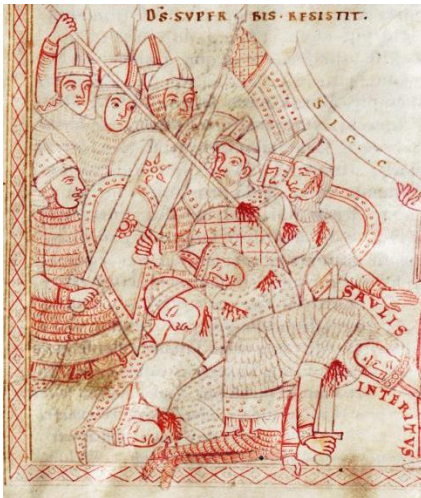 D̄S·SVPER BIS·RESISTIT·
SIC·C
SAVLIS
INTERITVS